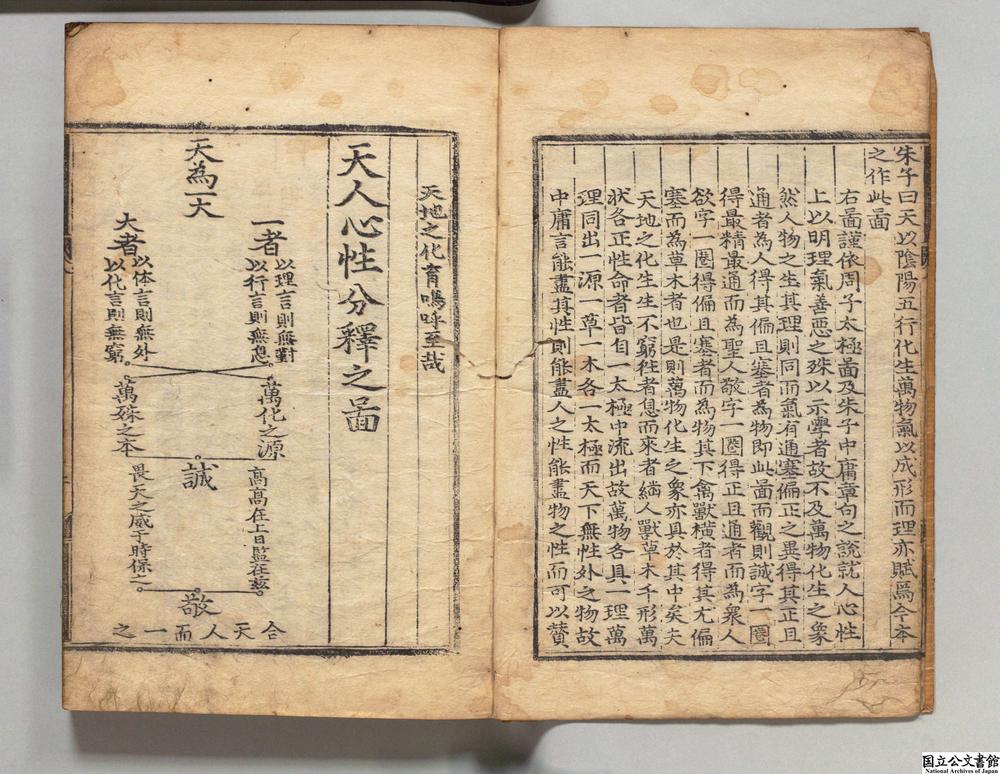 朱子曰天以陰陽五行化生萬物氣以成形而理亦賦焉今本
之作此啚
右啚謹依周子太極啚及朱子中庸章句之說就人心性
上以明理氣善惡之殊以示學者故不及萬物化生之象
然人物之生其理則同而氣有通塞偏正之異得其正且
通者為人得其偏且塞者為物即此啚而觀則誠字一圈
得最精最通而為聖人敬字一圈得正且通者而為衆人
欲字一圈得偏且塞者而為物其下禽獸橫者得其尤偏
塞而為草木者也是則萬物化生之象亦具於其中矣夫
天地之化生生不窮徃者息而來者継人獸草木千形萬
狀各正性命者皆自一太極中流出故萬物各具一理萬
理同出一源一草一木各一太極而天下無性外之物故
中庸言能盡其性則能盡人之性能盡物之性而可以贊
天地之化育嗚呼至哉
天人心性分釋之啚
天為一大
一者
以理言則無對
以行言則無息
萬化之源
大者
以体言則無外
以化言則無窮
萬殊之本
誠
高高在上日監在茲
畏天之威于時保之
敬
合天人而一之
国立公文書館
National Archives of Japan